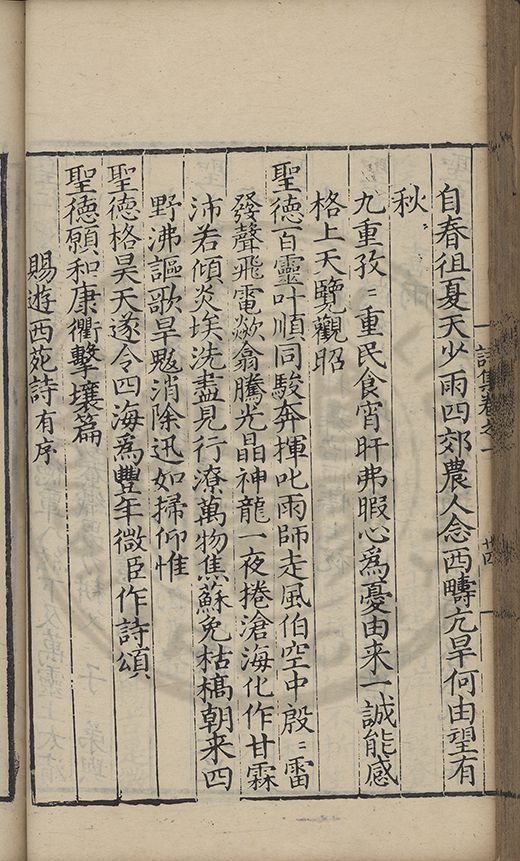 自春徂夏天少雨四郊農人念西疇亢旱何由望有
秋
九重孜〻重民食宵旰弗暇心爲憂由来一誠能感
格上天覽觀昭
聖徳百靈叶順同駿奔揮叱雨師走風伯空中殷〻雷
發聲飛電歘翕騰光晶神龍一夜捲滄海化作甘霖
沛若傾炎埃洗盡見行潦萬物焦蘇免枯槁朝来四
野沸謳歌旱魃消除迅如掃仰惟
聖徳格昊天遂令四海爲豐年微臣作詩頌
聖徳願和康衢擊壤篇
賜遊西苑詩有序
詩集卷之一
廿四